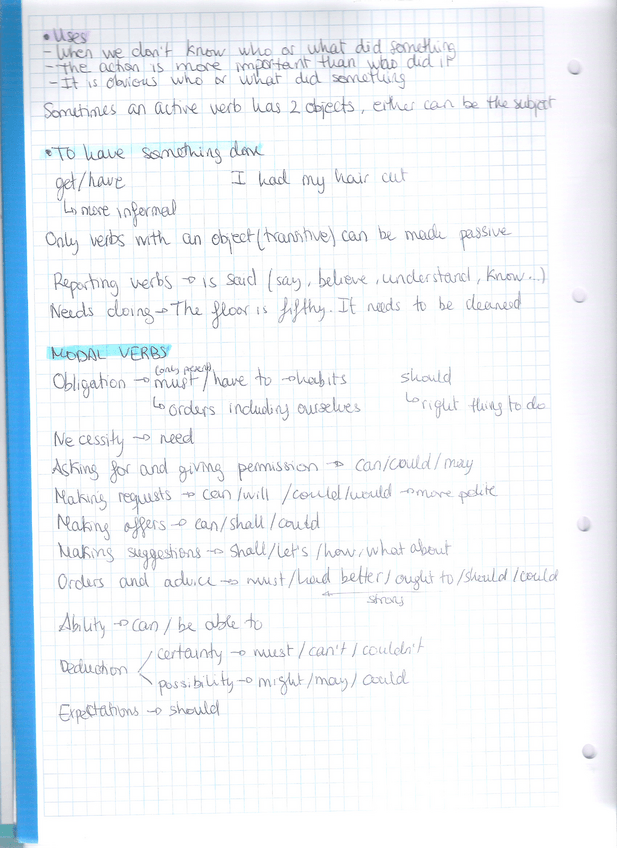 • Uses
- When we don't know who or what did something
- The action is more important than who did it
- It is obvious who or what did something
Sometimes an active verb has 2 objects, either can be the subject
• To have something done
get/have I had my hair cut
↳ more informal
Only verbs with an object (transitive) can be made passive
Reporting verbs → is said (say, believe, understand, know...)
Needs doing → The floor is fifthy. It needs to be cleaned
MODAL VERBS
(only present)
Obligation → must / have to → habits should
↳ orders including ourselves ↳ right thing to do
Necessity → need
Asking for and giving permission → can/could/may
Making requests → can/will/could/would → more polite
Making offers → can/shall/could
Making suggestions → shall/let's/how, what about
Orders and advice → must/had better/ought to/should/could
strong
Ability → can / be able to
Deduction
certainty → must / can't / couldn't
possibility → might/may/could
Expectations → should